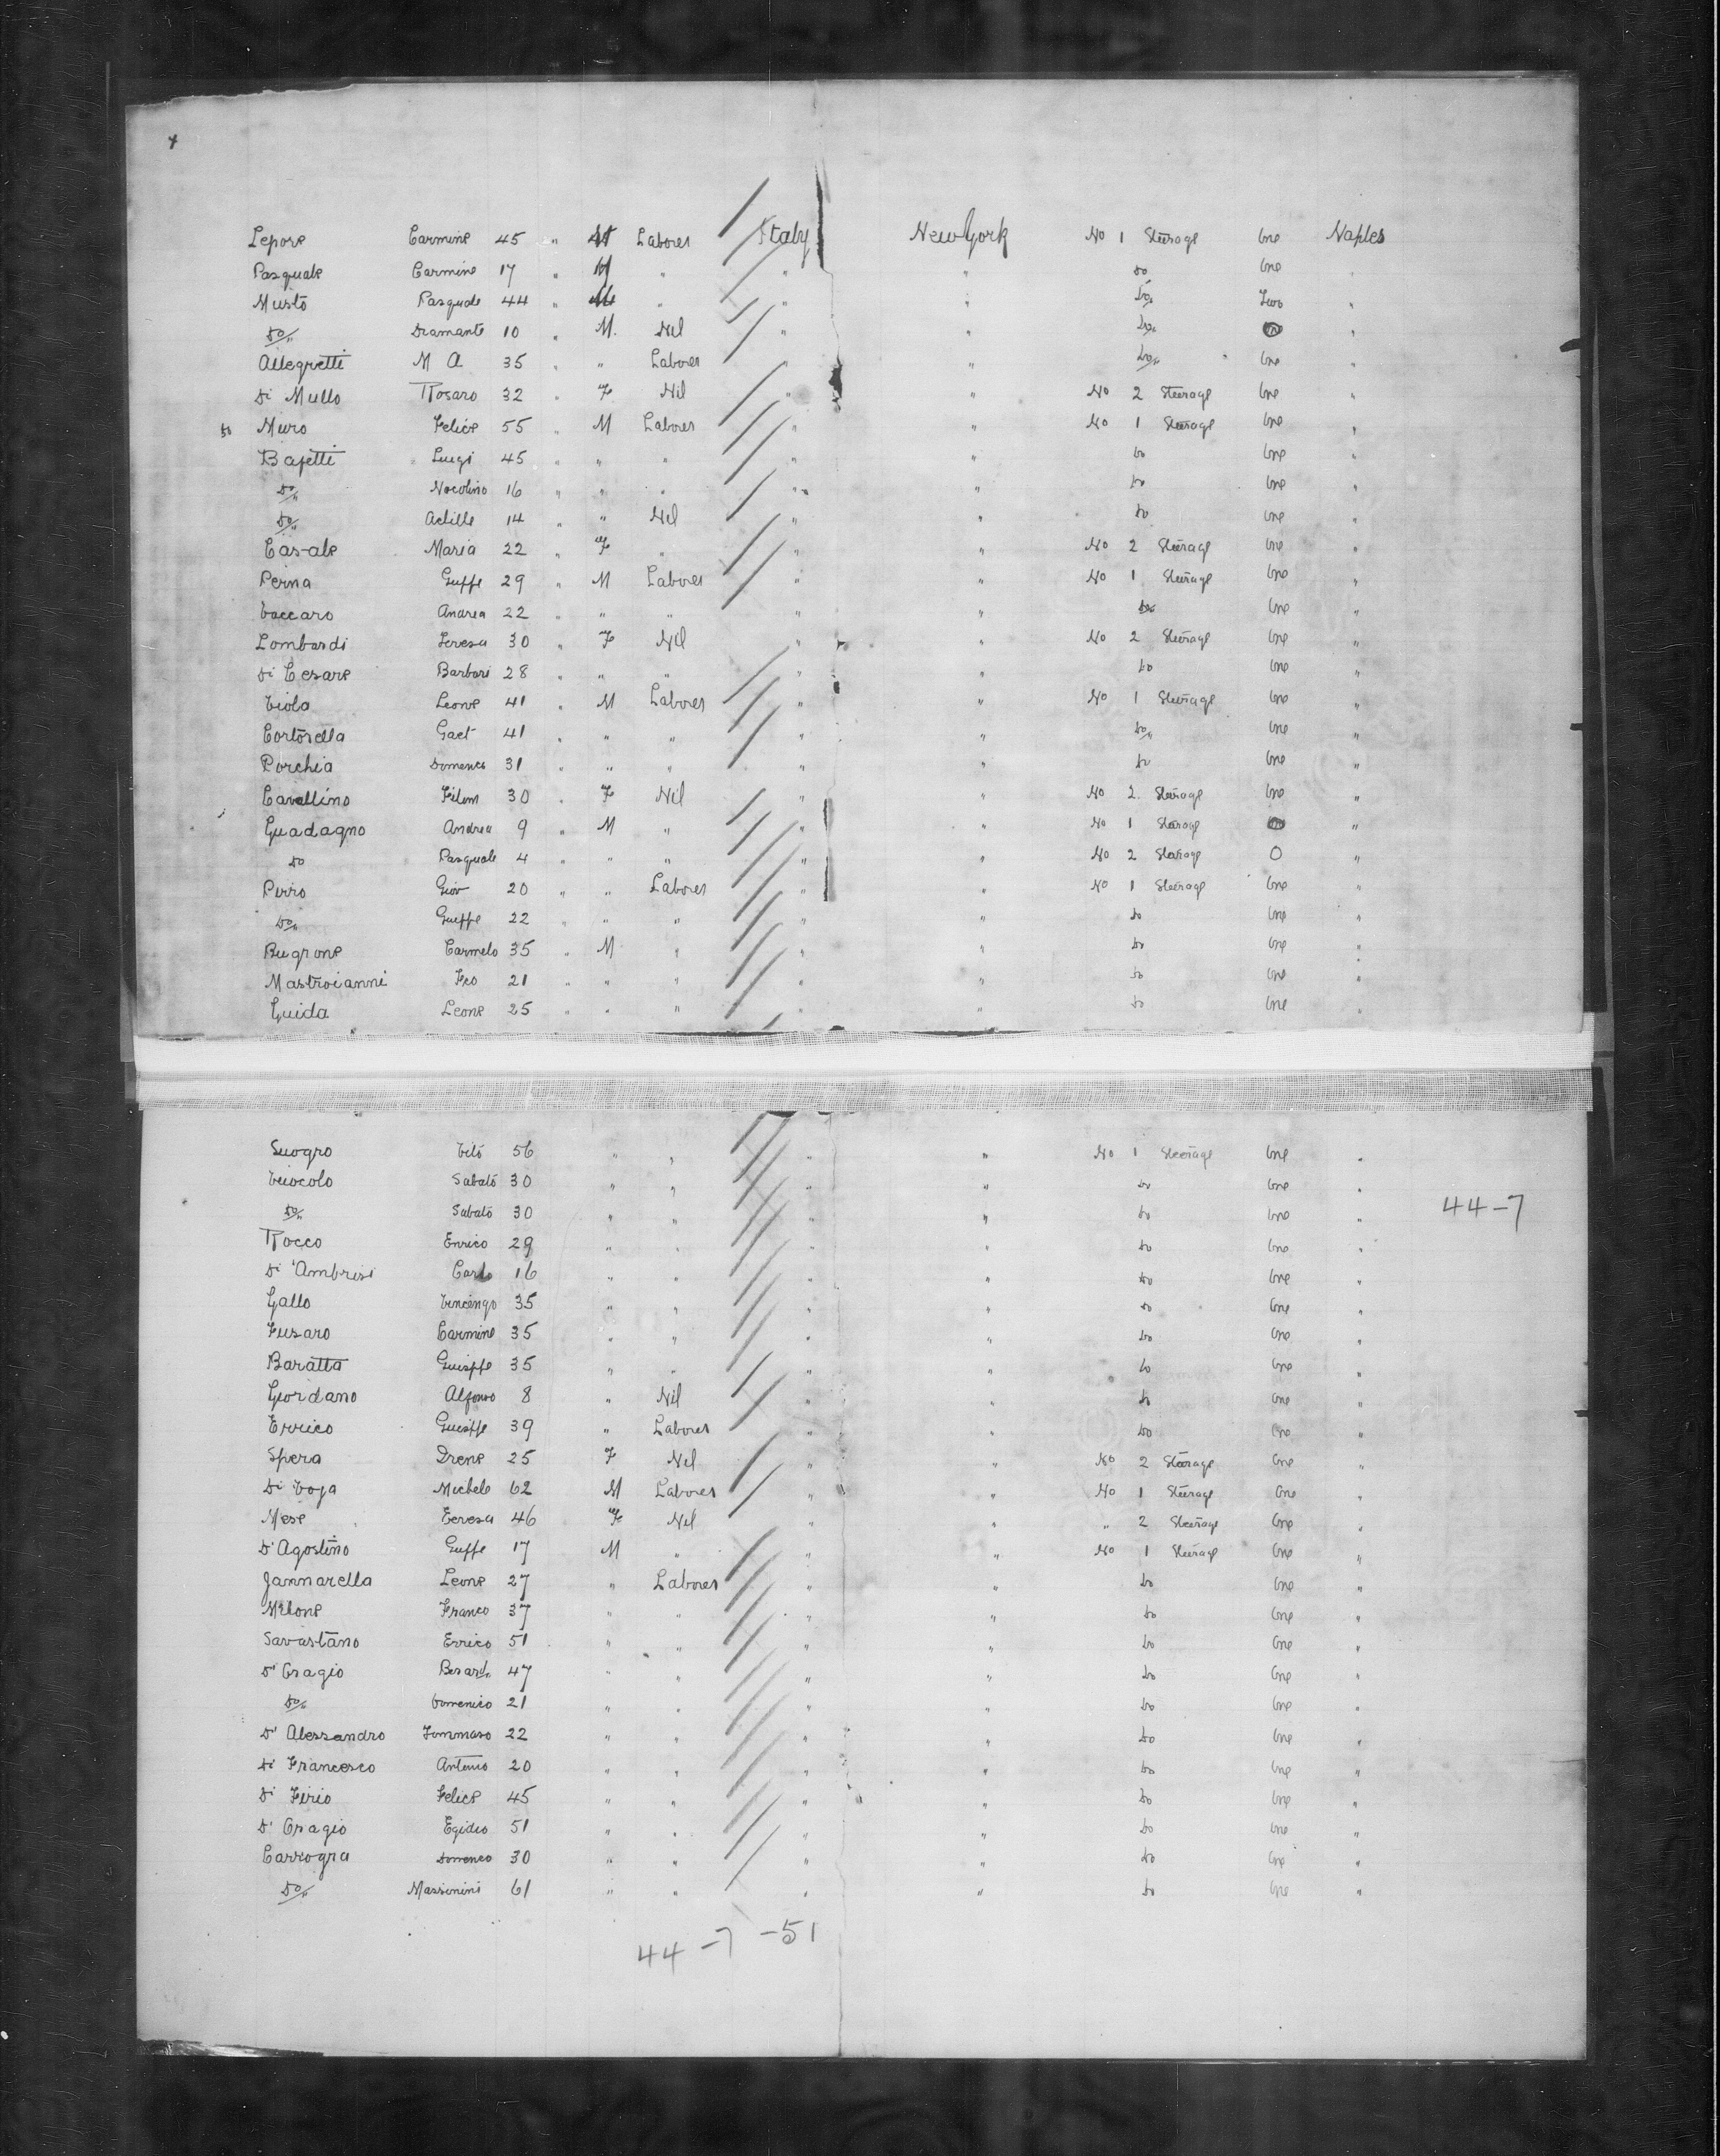 4
Lepore Carmine 45 " M Laborer Italy New York No 1 Steerage One Naples
Pasquale Carmine 17 " M " " " do One "
Musto Pasquale 44 " M " " " do Two "
do Diamante 10 " M. Nil " " do "
Allegretti M A 35 " " Laborer " " do One "
Di Mullo Rosaro 32 " F Nil " " No 2 Steerage One "
50 Muro Felice 55 " M Laborer " " No 1 Steerage One "
Bafetti Luigi 45 " " " " " do One "
do Nocolino 16 " " " " " do One "
do Achille 14 " " Nil " " do One "
Casale Maria 22 " F " " " No 2 Steerage One "
Perna Guffe 29 " M Laborer " " No 1 Steerage One "
Vaccaro Andrea 22 " " " " " do One "
Lombardi Teresa 30 " F Nil " " No 2 Steerage One "
Di Cesare Barbari 28 " " " " " do One "
Viola Leone 41 " M Laborer " " No 1 Steerage One "
Cortosella Gaet 41 " " " " " do One "
Porchia Domenco 31 " " " " " do One "
Cavallino Filom 30 " F Nil " " No 2 Steerage One "
Guadagno Andrea 9 " M " " " No 1 Steerage "
do Pasquale 4 " " " " " No 2 Steerage O "
Pirro Giov 20 " " Laborer " " No 1 Steerage One "
do Gueffe 22 " " " " " do One "
Bugrone Carmelo 35 " M " " " do One "
Mastroianni Fco 21 " " " " " do One "
Guida Leone 25 " " " " " do One "
Suogro Vito 56 " " " " No 1 Steerage One "
Vuocolo Sabato 30 " " " " do One "
do Sabato 30 " " " " do One " 44-7
Rocco Enrico 29 " " " " do One "
Di Ambrisi Carlo 16 " " " " do One "
Gallo Vincengo 35 " " " " do One "
Fusaro Carmine 35 " " " " do One "
Baratta Guisffe 35 " " " " do One "
Giordano Alfonso 8 " Nil " " do One "
Errico Guisffe 39 " Laborer " " do One "
Spera Irene 25 F Nil " " No 2 Steerage One "
Di Voja Michele 62 M Laborer " " No 1 Steerage One "
Mese Teresa 46 F Nil " " " 2 Steerage One "
D'Agostino Guffe 17 M " " " No 1 Steerage One "
Jannarella Leone 27 " Laborer " " do One "
Milone Franco 37 " " " " do One "
Savastano Errico 51 " " " " do One "
D' Oragio Berard 47 " " " " do One "
do Domenico 21 " " " " do One "
D' Alessandro Tommaso 22 " " " " do One "
Di Francesco Antonio 20 " " " " do One "
Di Firio Felice 45 " " " " do One "
D' Oragio Egidio 51 " " " " do One "
Carrogra Domenco 30 " " " " do One "
do Massimini 61 " " " " do One "
44 -7 -51